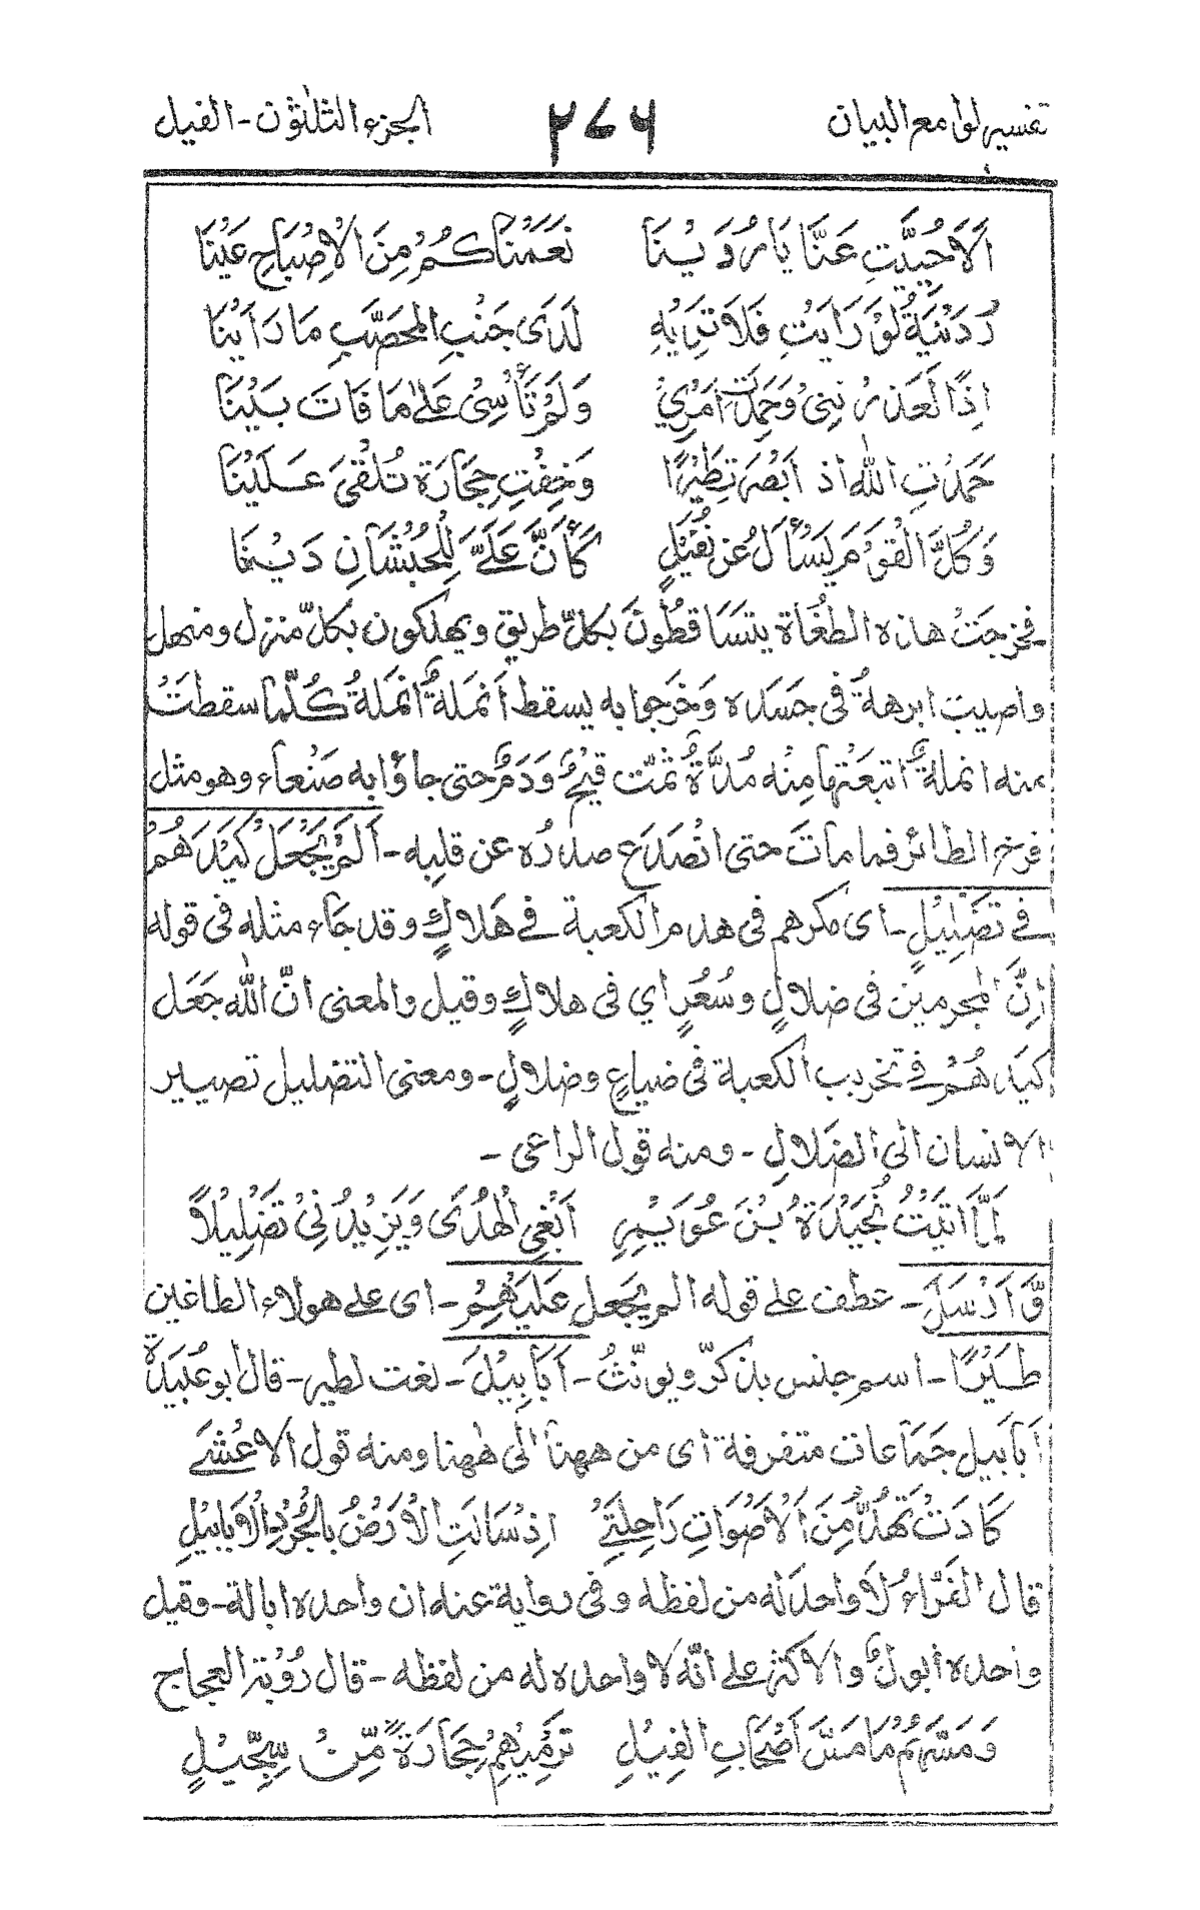 تفسير لوامع البيان ٢٧٦ الجزء الثلٰثون - الفيل
اَلَا حُيِّيْتِ عَنَّا يَا رُدَيْنَا نَعَمْنَاكُمْ مِنَ الْاِصْبَاحِ عَيْنَا
رُدَيْنَةُ لَوْ رَاَيْتِ فَلَا تَرَيْهِ لَدَى جَنْبِ المحَصَّبِ مَا رَاَيْنَا
اِذًا لَعَذَرْتِنِىْ وَحَمِدْتِ اَمْرِيْ وَلَمْ تَاْسِىْ عَلٰى مَا فَاتَ بَيْنَا
حَمِدْتِ اللّٰه اذ اَبْصَرتِ طَيْرًا وَخِفْتِ حِجَارَة تُلْقٰىَ عَلَيْنَا
وَكُلَّ الْقَوْمِ يَسْأَلُ عَنْ نُفَيْلٍ كَأَنَّ عَلَيَّ لِلْحُبْشَانِ دَيْنَا
ـ فخرجَتْ هذه الطغَاة يتسَاقطُونَ بكلّ طريق ويهلكون بكلّ منزل ومنهل
واصيبت ابرهةُ فى جسَده وَخرجوا به يسقط اَنملةٌ اَنملةٌ كُلَّما سقطتْ
منه انملةٌ اتبعَتْها مِنْه مُدَّةٌ ثمّت قيْحٌ وَدَمٌ حتى جاؤا به صَنْعاء وهو مثل
فرخ الطائر فما ماتَ حتى انْصَدَع صدرُه عن قلبِه - اَلَمْ يَجْعَلْ كَيْدَهُمْ
فِي تَضْلِيْلٍ - اى مكرهم فى هدم الكعبة فى هَلاكٍ وقد جَاء مثله فى قوله
اِنَّ المجرمين فى ضلالٍ وسُعُرٍ اي فى هلاكٍ وقيل والمعنى انّ اللّٰه جَعَل
كيدَهُمْ فى تخريب الكعبة فى ضياعٍ وضلالٍ - ومعنى التضليل تصيير
الانسان الى الضَلالِ - ومنه قول الراعى -
لمَّا اتَيْتُ نُجَيْدَةُ بْنَ عُوَيْمِرٍ اَبْغِي الْهُدٰى وَيَزِيْدُنِيْ تَضْلِيْلًا
وَّاَرْسَلَ - عطف على قوله الم يجعل عَلَيْهِمْ - اى على هولاء الطاغين
طَيْرًا - اسم جنس يذكرّ ويونّثُ - اَبَابِيْلَ - نعت لطير - قال ابو عُبَيدة
اَبابيل جَماعات متفرقة اى من ههنا الى ههنا ومنه قول الاعْشٰے
كَادَتْ تَهُدُّ مِنَ الْاَصْوَاتِ رَاحِلَتِيْ اِذْ سَالَتِ الْاَرْضُ بالْجُرْدِ الْاَبابِيْلِ
قال الفَرَّاءُ لَا واحدَ له من لفظه وفى رواية عنه ان واحده ابالة - وقيل
واحده ابّولٌ والاكثر على انّه لا واحده له من لفظه - قال رُوْبَة العجاج
وَمَسَّهُمْ مَا مَسَّ اَصْحَابِ الفِيْلِ تَرْمِيْهِمْ حِجَارَةٌ مِّنْ سِجِّيْلٍ